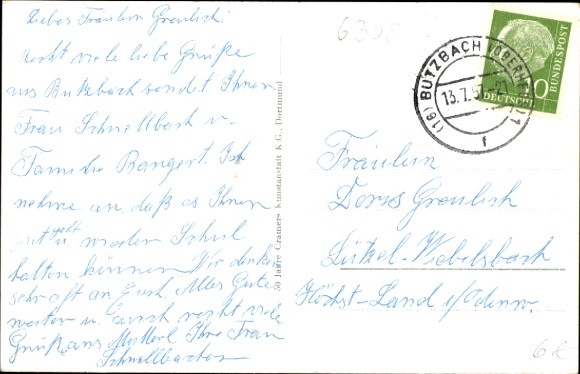 Liebes Fräulein Greulich!
Recht viele liebe Grüße
aus Butzbach sendet Ihnen
Frau Schnellbach u.
Familie Bangert. Ich
nehme an daß es Ihnen
gut geht u. wieder Schul
halten können Wir denken
sehr oft an Euch. Alles Gute
weiter u. auch recht viele
Grüße ans Mutterl Ihre Frau
Schnellbacher
50 Jahre Cramers Kunstanstalt K G., Dortmund
6308
(16) BUTZBACH (OBERHESS) 1
13.7.5
f
DEUTSCHE BUNDESPOST
10
Fräulein
Doris Greulich
Lützel-Wiebelsbach
Höchst-Land i/Odenw.
6 €